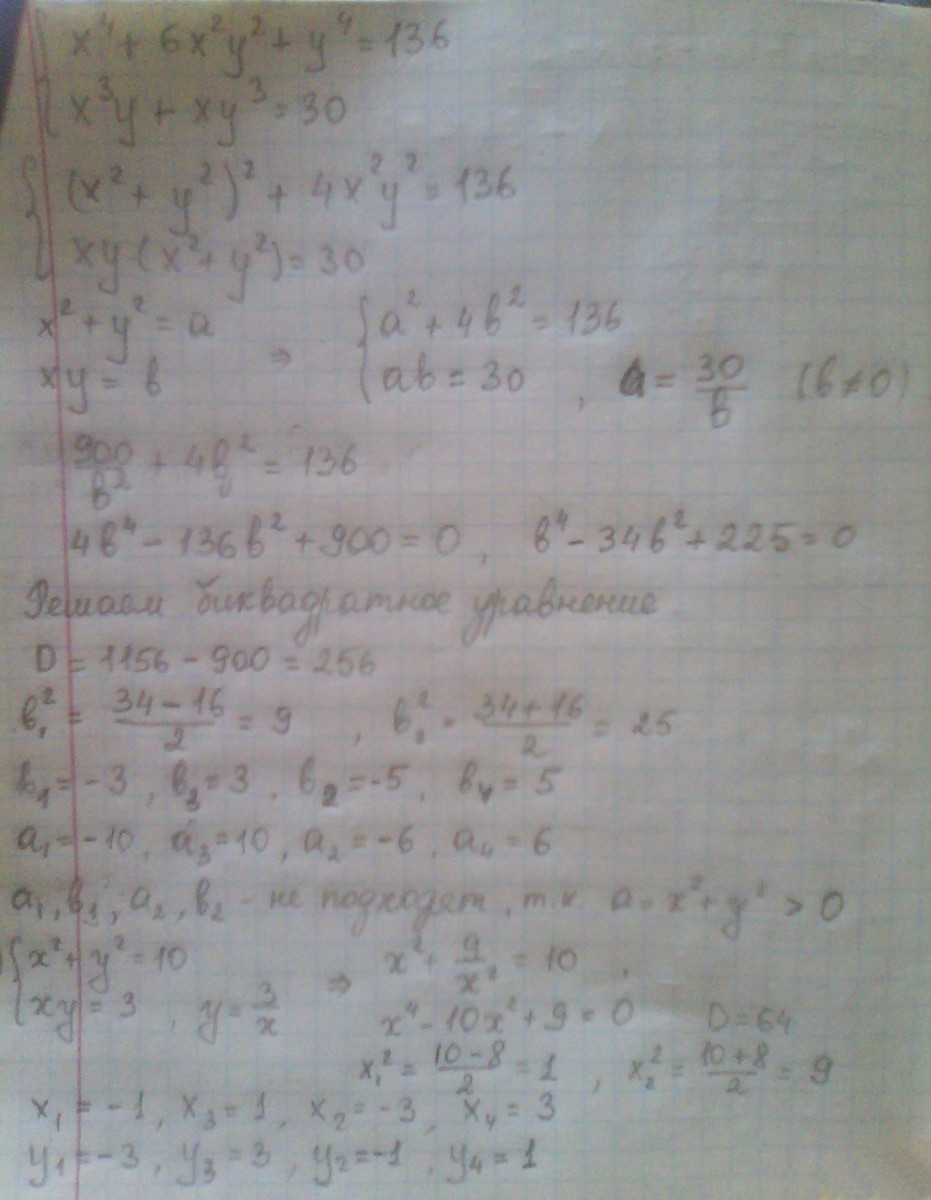 x⁴ + 6x²y² + y⁴ = 136
x³y + xy³ = 30
(x² + y²)² + 4x²y² = 136
xy(x² + y²) = 30
x² + y² = a ⇒ { a² + 4в² = 136
xy = в { aв = 30 , a = 30/в (в ≠ 0)
900/в² + 4в² = 136
4в⁴ - 136в² + 900 = 0 , в⁴ - 34в² + 225 = 0
Решаем биквадратное уравнение
D = 1156 - 900 = 256
в₁² = (34 - 16)/2 = 9 , в₂² = (34 + 16)/2 = 25
в₁ = -3 , в₃ = 3 , в₂ = -5 , в₄ = 5
a₁ = -10 , a₃ = 10 , a₂ = -6 , a₄ = 6
a₁, в₁, a₂, в₂ - не подходят, т.к a = x² + y² > 0
{ x² + y² = 10 ⇒ x² + 9/x² = 10 ,
xy = 3 , y = 3/x x⁴ - 10x² + 9 = 0 D = 64
x₁² = (10 - 8)/2 = 1 , x₂² = (10 + 8)/2 = 9
x₁ = -1 , x₃ = 1 , x₂ = -3 , x₄ = 3
y₁ = -3 , y₃ = 3 , y₂ = -1 , y₄ = 1